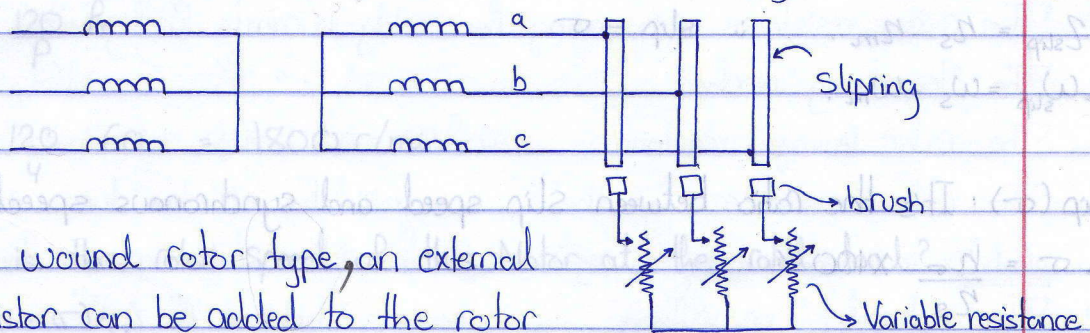 a
b
Slipring
c
brush
wound rotor type, an external
stor can be added to the rotor
Variable resistance